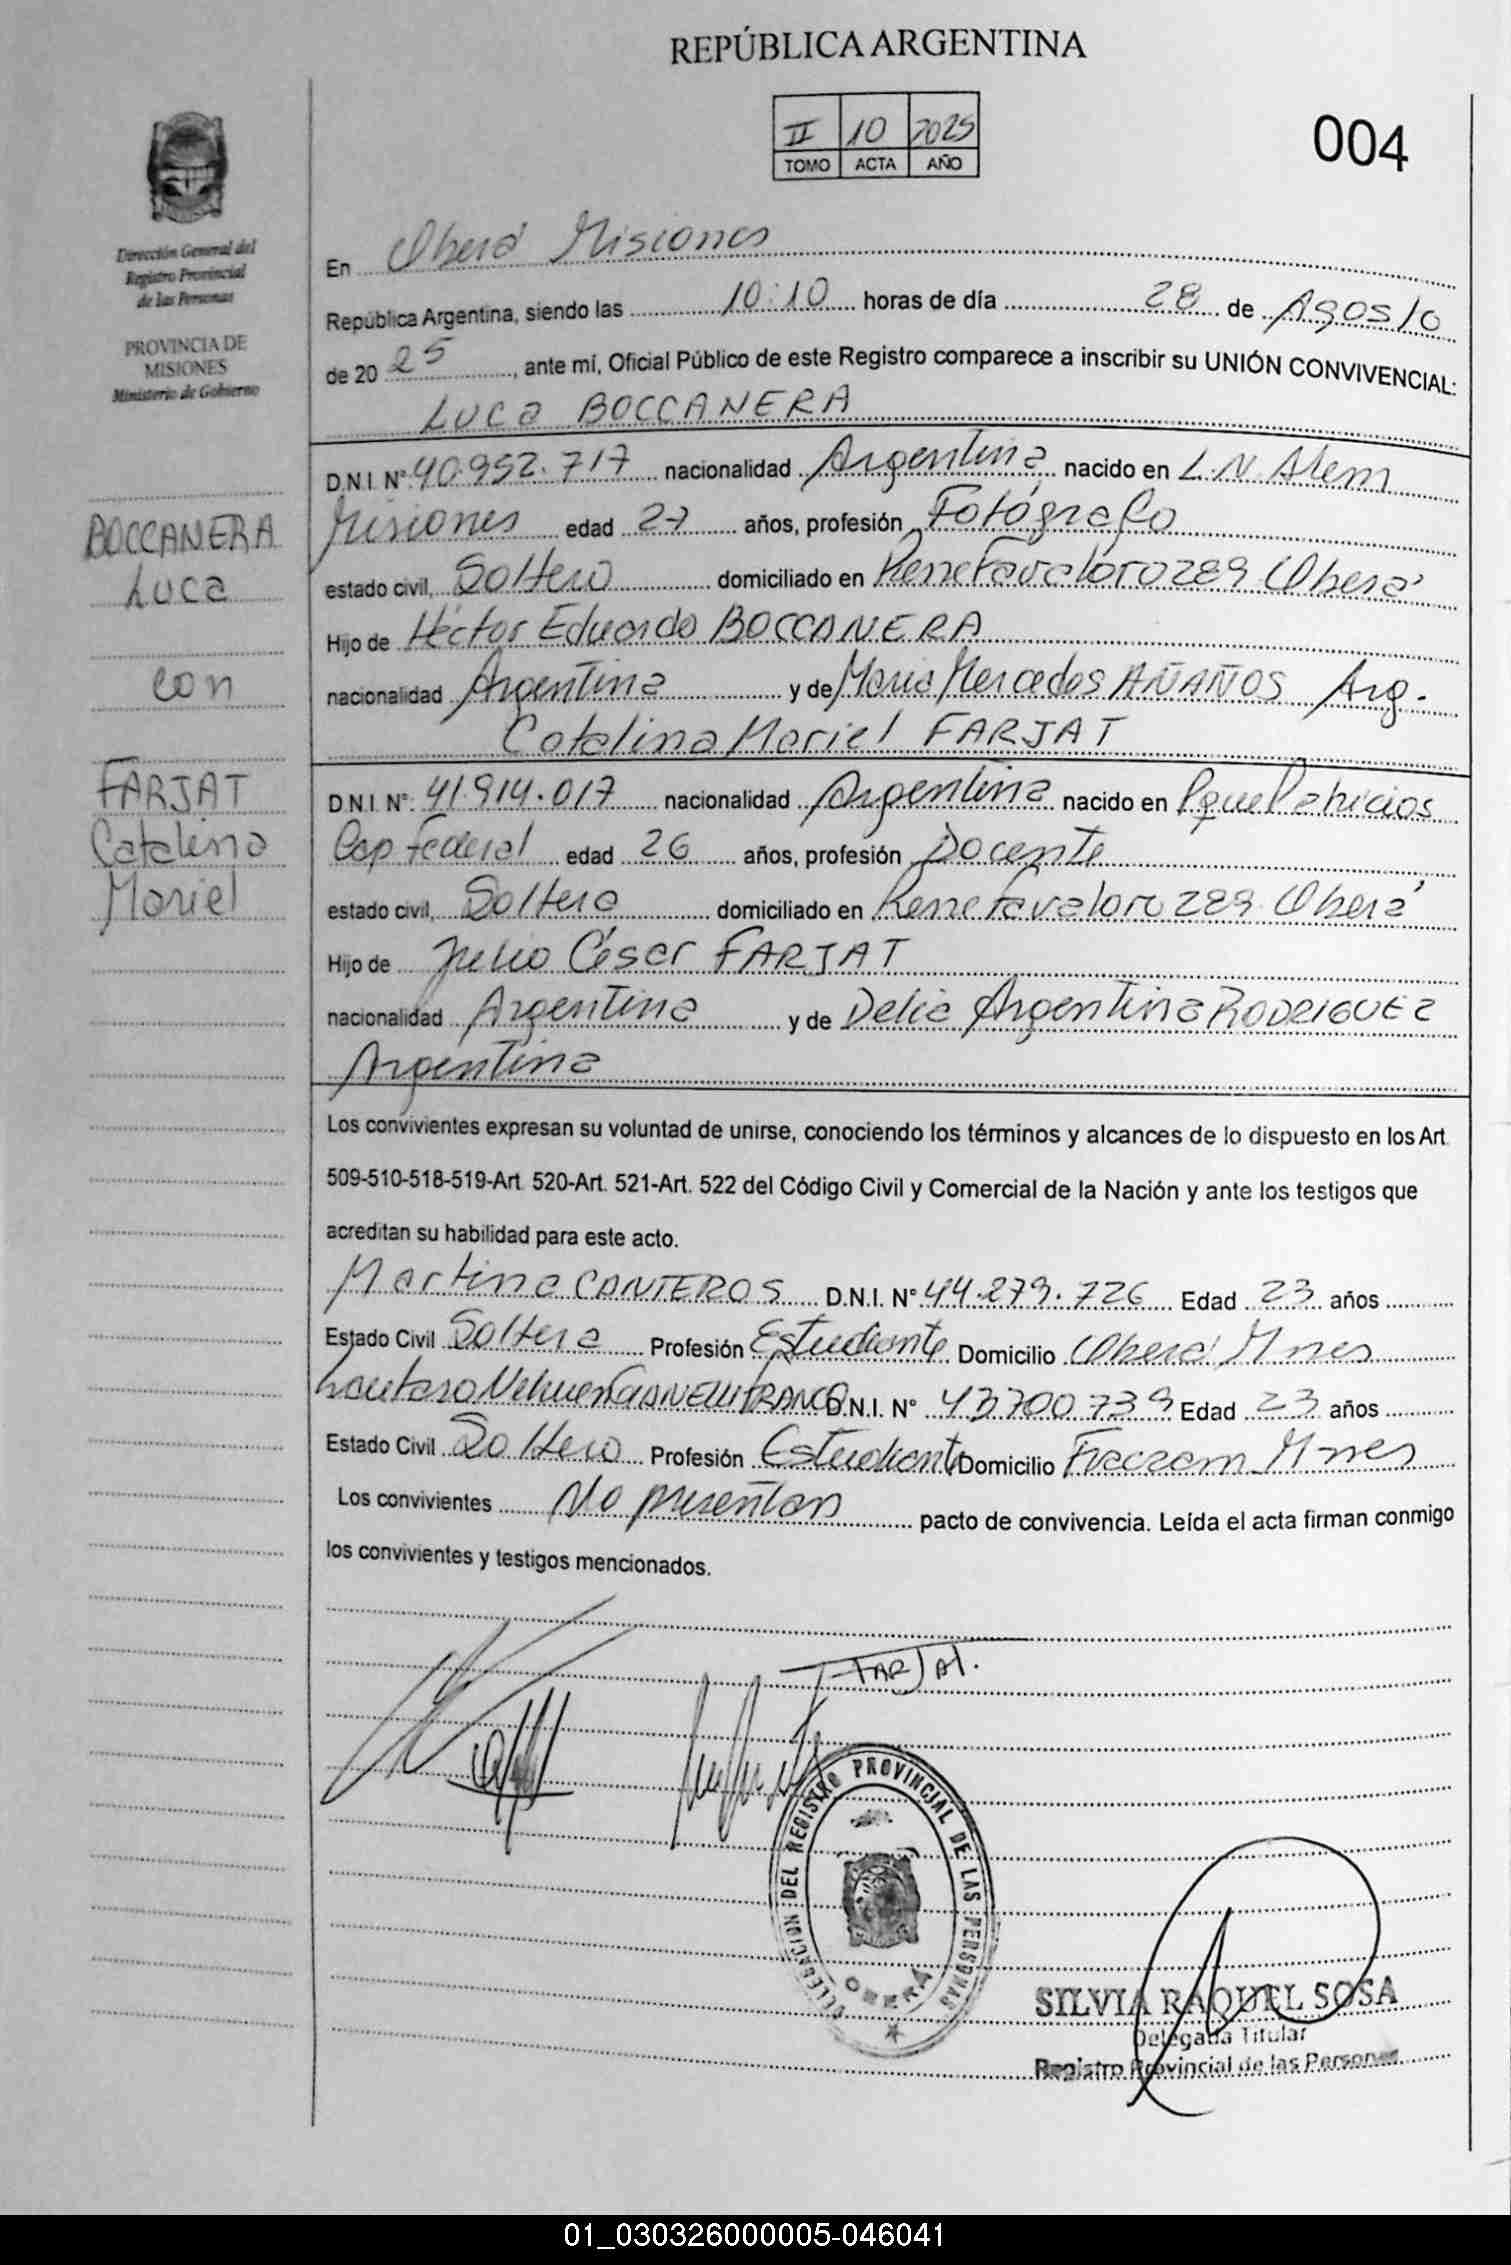 REPÚBLICA ARGENTINA
II 10 2025
TOMO ACTA AÑO
004
Dirección General del
Registro Provincial
de las Personas
PROVINCIA DE
MISIONES
Ministerio de Gobierno
En Oberá Misiones
República Argentina, siendo las 10:10 horas de día 28 de Agosto
de 20 25, ante mí, Oficial Público de este Registro comparece a inscribir su UNIÓN CONVIVENCIAL:
Luca BOCCANERA
D.N.I. N° 40.952.717 nacionalidad Argentina nacido en L.N. Alem
Misiones edad 27 años, profesión Fotógrafo
estado civil, Soltero domiciliado en Rene Favaloro 289 Oberá
Hijo de Héctor Eduardo BOCCANERA
nacionalidad Argentina y de Maria Mercedes AÑAÑOS Arg.
BOCCANERA
Luca
con
FARJAT
Catalina
Mariel
Catalina Mariel FARJAT
D.N.I. N°. 41.914.017 nacionalidad Argentina nacido en Pque Patricios
Cap Federal edad 26 años, profesión Docente
estado civil, Soltera domiciliado en Rene Favaloro 289 Oberá
Hijo de Julio César FARJAT
nacionalidad Argentina y de Delia Argentina RODRIGUEZ
Argentina
Los convivientes expresan su voluntad de unirse, conociendo los términos y alcances de lo dispuesto en los Art.
509-510-518-519-Art. 520-Art. 521-Art. 522 del Código Civil y Comercial de la Nación y ante los testigos que
acreditan su habilidad para este acto.
Martina CANTEROS D.N.I. N° 44.279.726 Edad 23 años
Estado Civil Soltera Profesión Estudiante Domicilio Oberá Mnes
Lautaro Nehuen FRANCO D.N.I. N° 43700739 Edad 23 años
Estado Civil Soltero Profesión Estudiante Domicilio Fracran Mnes
Los convivientes No presentan pacto de convivencia. Leída el acta firman conmigo
los convivientes y testigos mencionados.
FARJAT.
DELEGACION DEL REGISTRO PROVINCIAL DE LAS PERSONAS
OBERA
SILVIA RAQUEL SOSA
Delegada Titular
Registro Provincial de las Personas
01_030326000005-046041